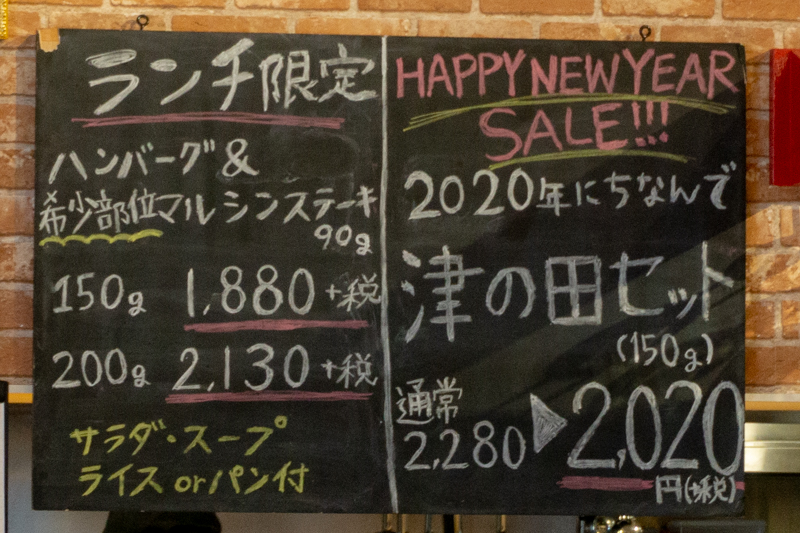 ランチ限定
ハンバーグ&
希少部位マルシンステーキ
90g
150g 1,880+税
200g 2,130+税
サラダ・スープ
ライスorパン付
HAPPY NEW YEAR
SALE!!!
2020年にちなんで
津の田セット
(150g)
通常
2,280▶2,020
円(+税)